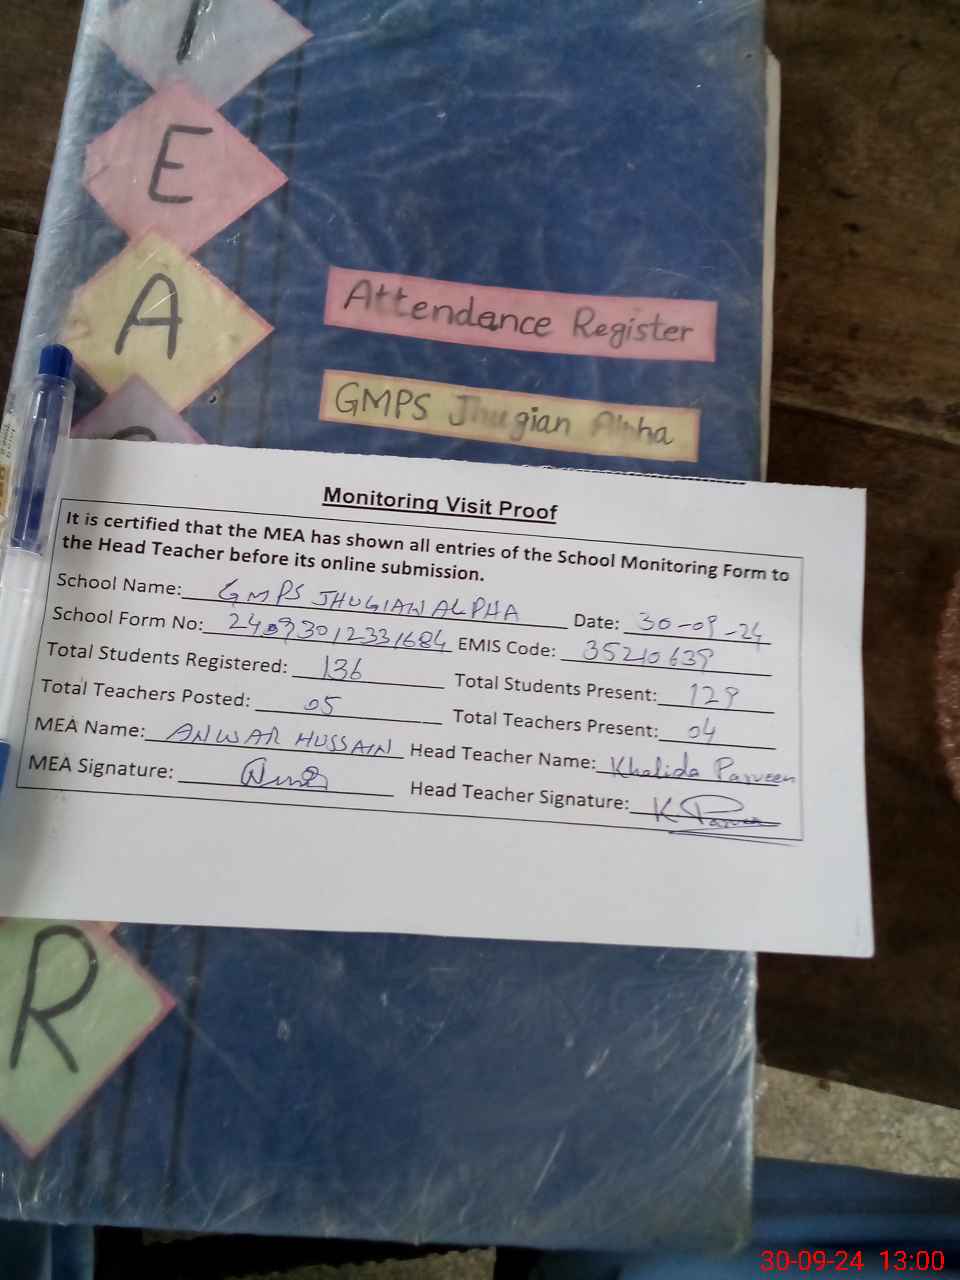 T
E
A
Attendance Register
GMPS Jhugian Alpha
Monitoring Visit Proof
It is certified that the MEA has shown all entries of the School Monitoring Form to
the Head Teacher before its online submission.
School Name: GMPS JHUGIAN ALPHA Date: 30-09-24
School Form No: EMIS Code: 35210639
Total Students Registered: 136 Total Students Present: 129
Total Teachers Posted: 05 Total Teachers Present: 04
MEA Name: ANWAR HUSSAIN Head Teacher Name: Khalida Parveen
MEA Signature: Head Teacher Signature: K Parveen
R
30-09-24 13:00